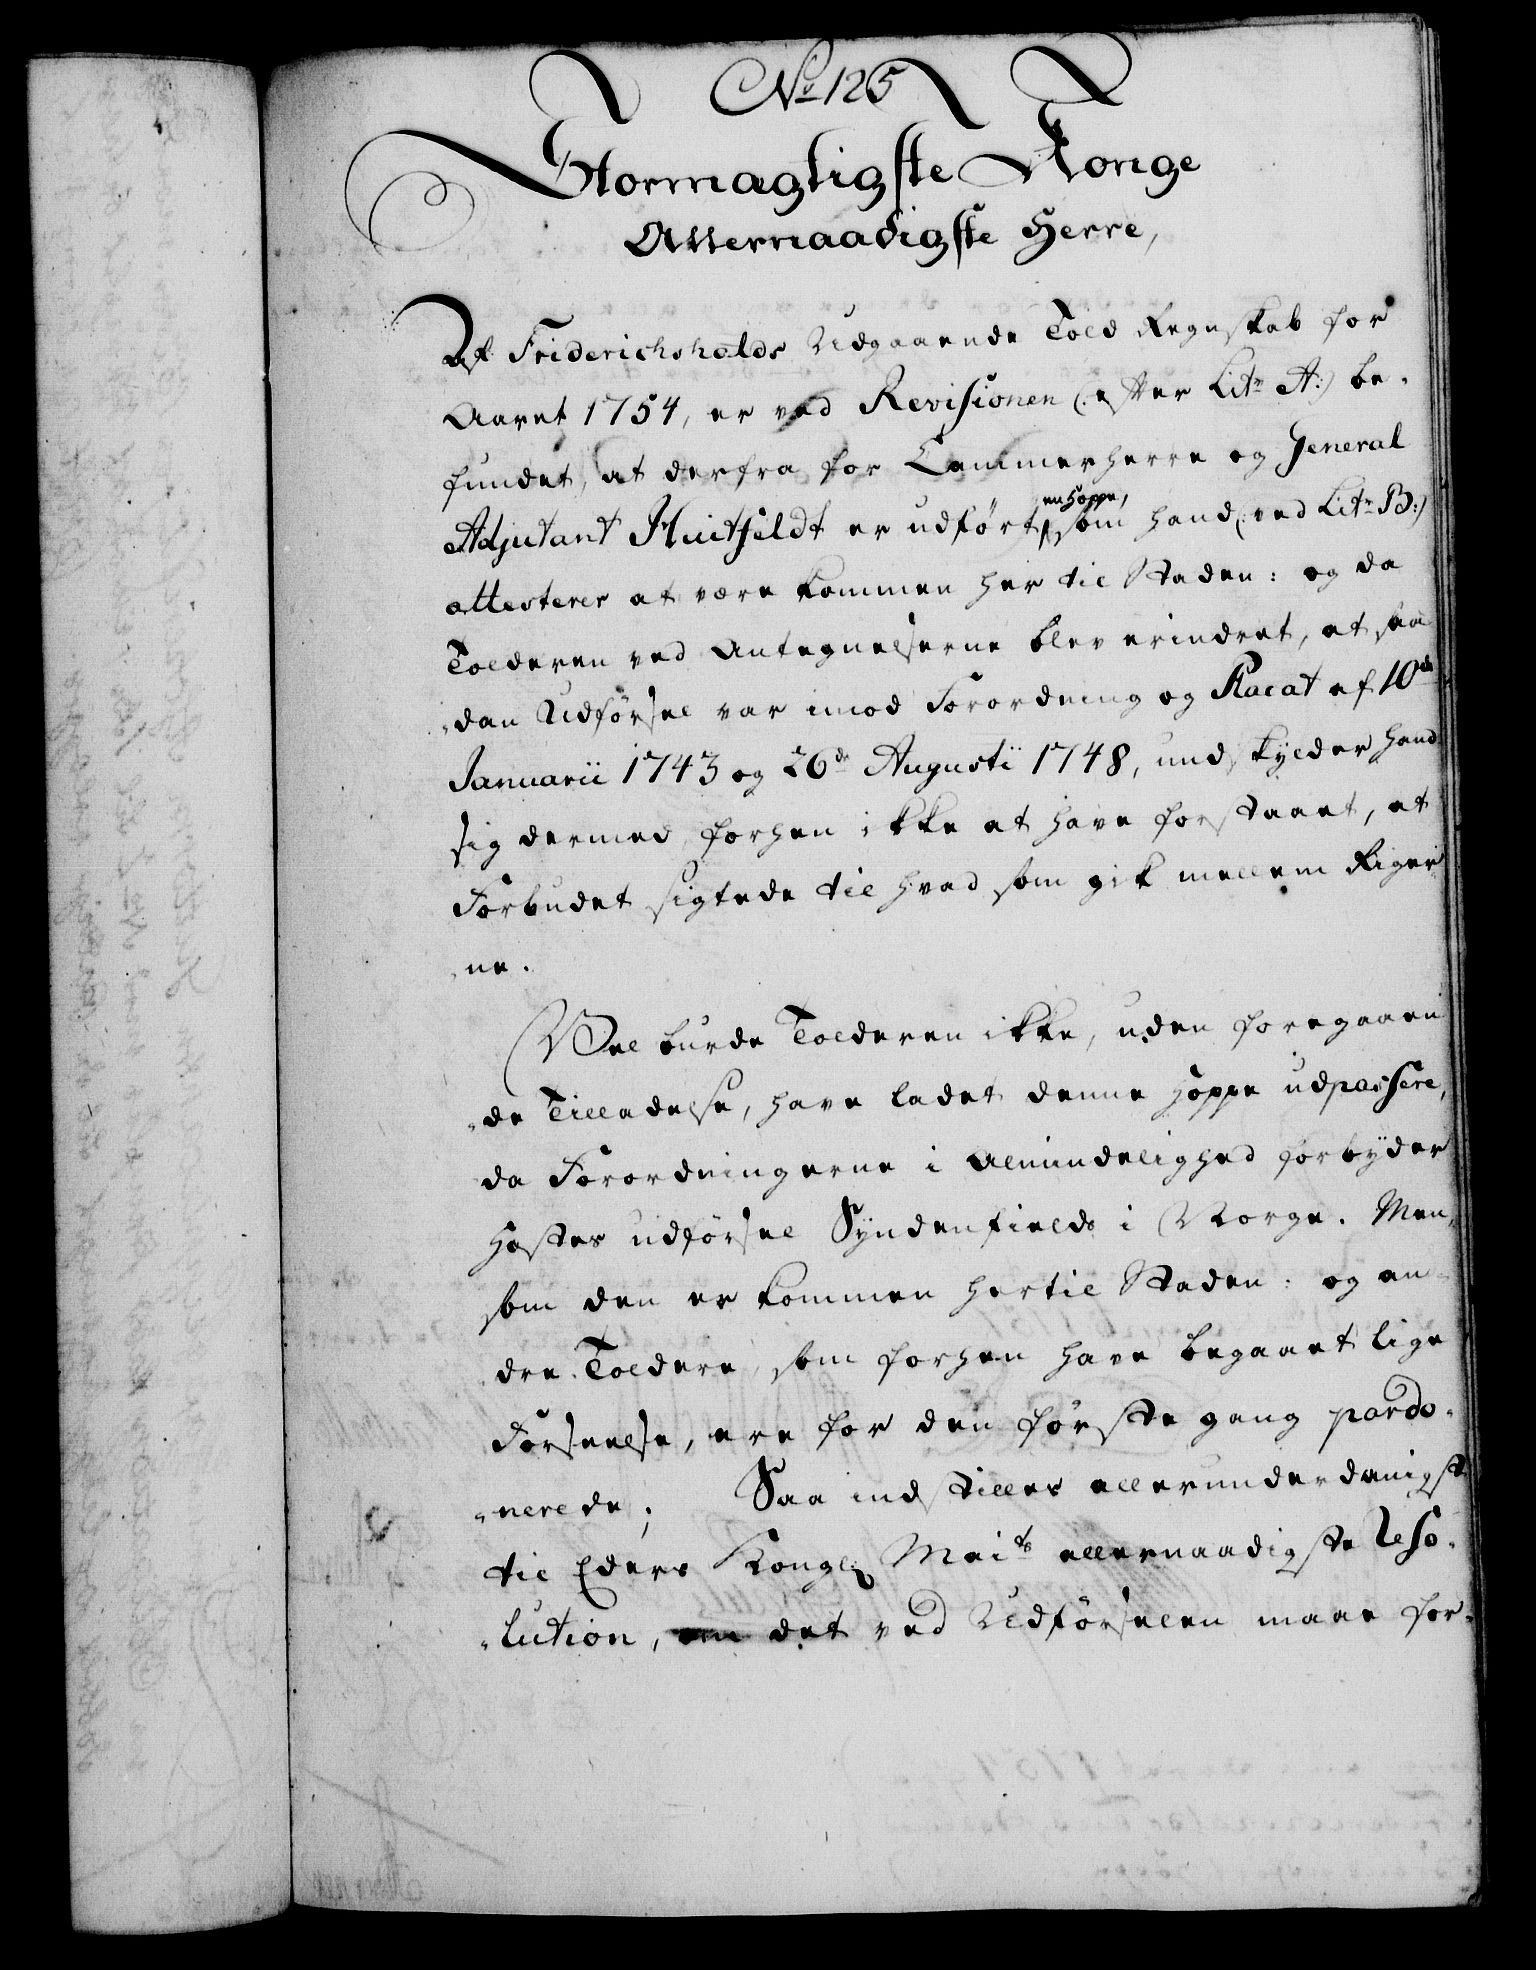 No 125
Stormagtigste Konge
Allernaadigste Herre,
Af Friderichshalds Udgaaende Told Regnskab for
Aaret 1754, er ved Revisionen (: efter Litr A:) be-
fundet, at derfra for Cammerherre og General
en Hoppe,
Adjutant Huitfeldt er udført, som hand (: ved Litr B:)
attesterer at være kommen her til Staden: og da
Tolderen ved Antegnelserne blev erindret, at saa
-dan Udførsel var imod Forordning og Placat af 10de
Januarii 1743 og 26de Augustii 1748, undskylder hand
sig dermed, forhen ikke at have forstaaet, at
Forbudet sigtede til hvad som gik mellem Riger
-ne.
Vel burde Tolderen ikke, uden foregaaen
-de Tilladelse, have ladet denne Hoppe udpassere,
da Forordningerne i Almindelighed forbyder
Hæstes udførsel Syndenfields i Norge. Men,
som den er kommen hertil Staden: og an-
dre Toldere, som forhen have begaaet lige
Forseelse, ere for den første gang pardo-
-nerede; Saa indstilles allerunderdanigst
til Eders Kongl: Maits allernaadigste Reso-
-lution, om det ved Udførselen maae for-